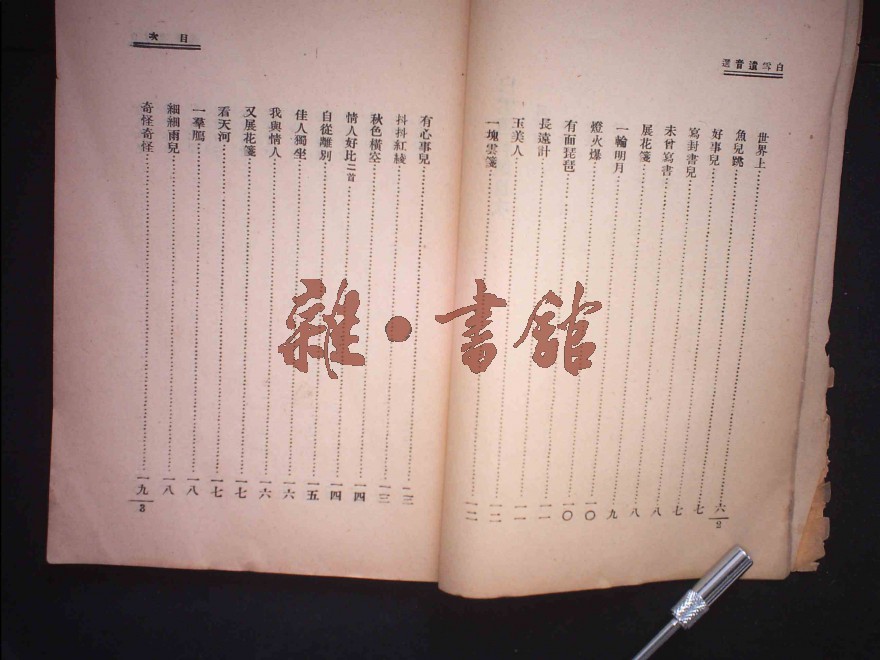 白雪遺音選
世界上……六
魚兒跳……七
好事兒……七
寫封書兒……八
未曾寫書……八
展花箋……九
一輪明月……一〇
燈火爆……一〇
有面琵琶……一一
長遠計……一一
玉美人……一二
一塊雲箋……一二
2
目次
有心事兒……一三
抖抖紅綾……一三
秋色橫空……一四
情人好比二首……一四
自從離別……一五
佳人獨坐……一六
我與情人……一六
又展花箋……一七
看天河……一七
一羣鴈……一八
細細雨兒……一八
奇怪奇怪……一九
3
雜·書館